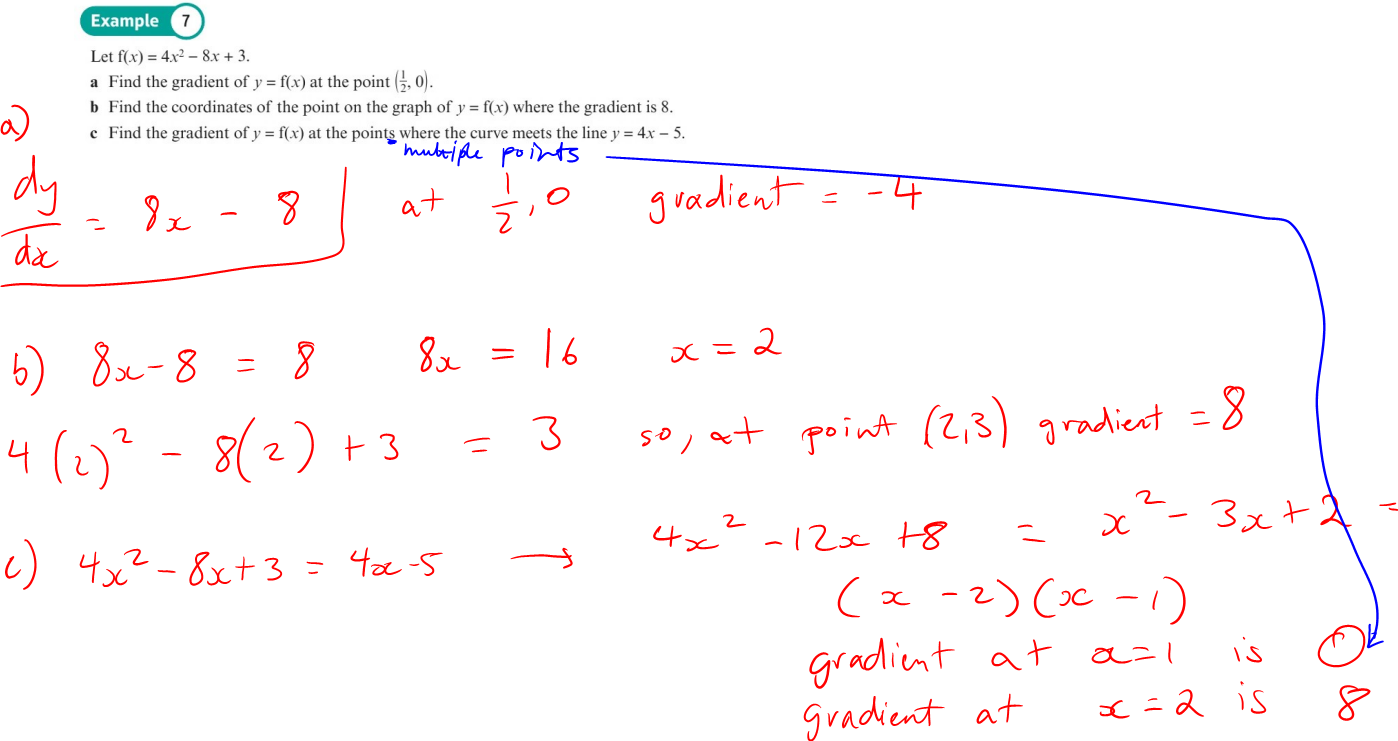 Example 7
Let f(x) = 4x² − 8x + 3.
a Find the gradient of y = f(x) at the point (1/2, 0).
b Find the coordinates of the point on the graph of y = f(x) where the gradient is 8.
c Find the gradient of y = f(x) at the points where the curve meets the line y = 4x − 5.
multiple points
a)
dy/dx = 8x - 8 at 1/2, 0 gradient = -4
b) 8x-8 = 8 8x = 16 x = 2
4(2)² - 8(2) + 3 = 3 so, at point (2,3) gradient = 8
c) 4x²-8x+3 = 4x-5 → 4x² -12x +8 = x² - 3x + 2 =
(x -2)(x -1)
gradient at x=1 is 0
gradient at x=2 is 8